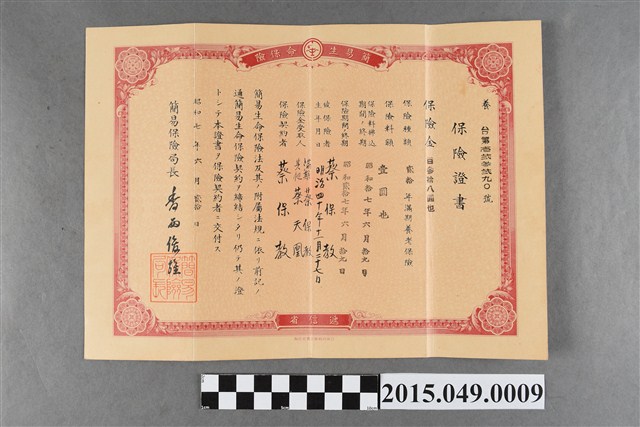 簡易生命保險
養 台第壹貳參貳九〇號
保險證書
保險金
保險種類 貳拾年滿期養老保險
保險料額 壹圓也
保險料拂込期間ノ終期 昭和拾七年六月拾九日
保險期間ノ終期 昭和貳拾七年六月拾九日
被保險者 蔡保教
生年月日 明治四十年十一月二十七日
保險金受取人 蔡保教 蔡天鳳
保險契約者 蔡保教
簡易生命保險法及其ノ附屬法規ニ依リ前記ノ
通簡易生命保險契約ヲ締結シタリ仍テ其ノ證
トシテ本證書ヲ保險契約者ニ交付ス
昭和七年六月貳拾日
簡易保險局長
遞信省
2015.049.0009